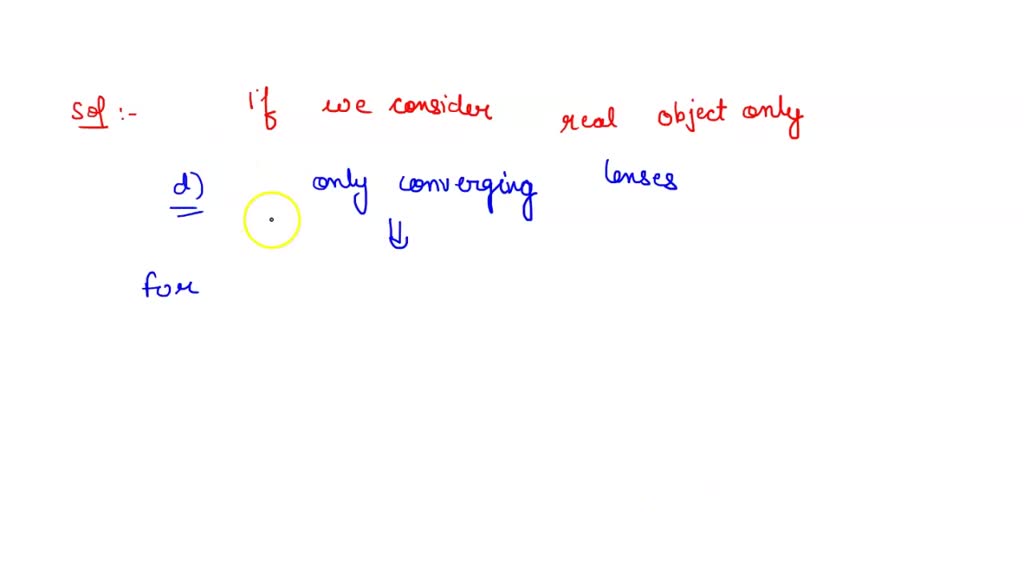 Sol :- If we consider real object only
d) only converging lenses
⇓
for